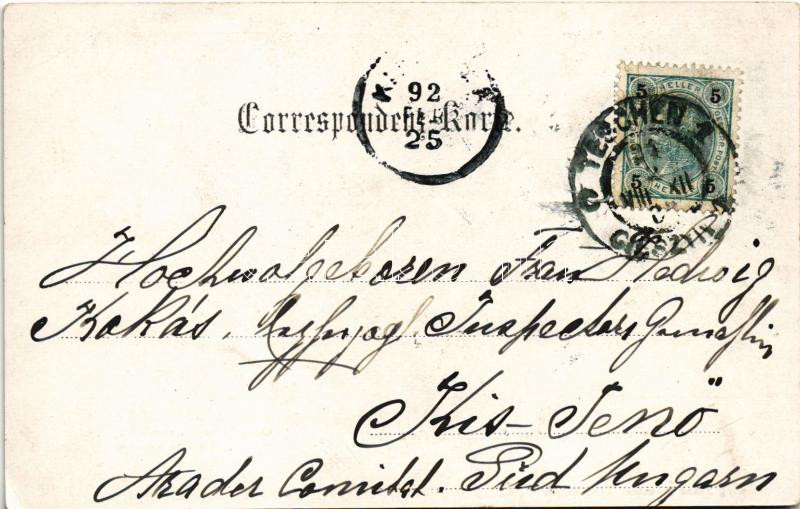 Correspondenz-Karte.
92
25
5 HELLER 5
5 5
TESCHEN 1
XII
VIII
CIESZYN
Hochwolgeboren Frau Hedwig
Kokás, Erzherzogl. Inspectors Gemahlin
Kis-Jenö
Arader Comitat. Süd Ungarn